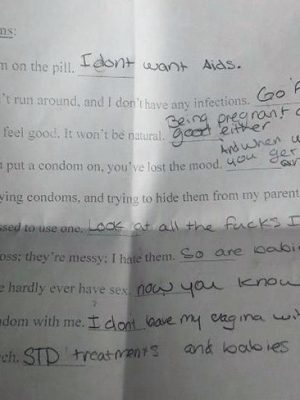 ns:
n on the pill. I dont want Aids.
't run around, and I don't have any infections. Go
Being pregnant
feel good. It won't be natural. good either
And when
n put a condom on, you've lost the mood. you get
ying condoms, and trying to hide them from my parent
ssed to use one. Look at all the fucks I
oss; they're messy; I hate them. So are babi
e hardly ever have sex. now you know
ndom with me. I dont leave my vagina wi
ch. STD treatments and babies